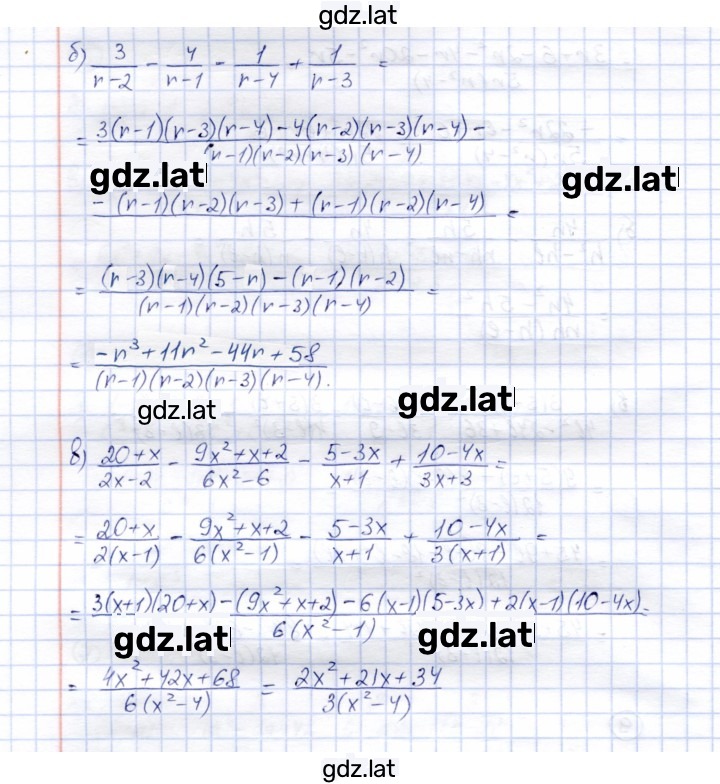 gdz.lat
б) 3/(n-2) - 4/(n-1) - 1/(n-4) + 1/(n-3) =
= (3(n-1)(n-3)(n-4) - 4(n-2)(n-3)(n-4) - / (n-1)(n-2)(n-3)(n-4)
gdz.lat
gdz.lat
- (n-1)(n-2)(n-3) + (n-1)(n-2)(n-4) =
= ((n-3)(n-4)(5-n) - (n-1)(n-2)) / ((n-1)(n-2)(n-3)(n-4)) =
= (-n³ + 11n² - 44n + 58) / ((n-1)(n-2)(n-3)(n-4)).
gdz.lat
gdz.lat
в) (20+x)/(2x-2) - (9x²+x+2)/(6x²-6) - (5-3x)/(x+1) + (10-4x)/(3x+3) =
= (20+x)/(2(x-1)) - (9x²+x+2)/(6(x²-1)) - (5-3x)/(x+1) + (10-4x)/(3(x+1)) =
= (3(x+1)(20+x) - (9x²+x+2) - 6(x-1)(5-3x) + 2(x-1)(10-4x)) / (6(x²-1)) =
gdz.lat
gdz.lat
= (4x²+42x+68)/(6(x²-4)) = (2x²+21x+34)/(3(x²-4))
gdz.lat